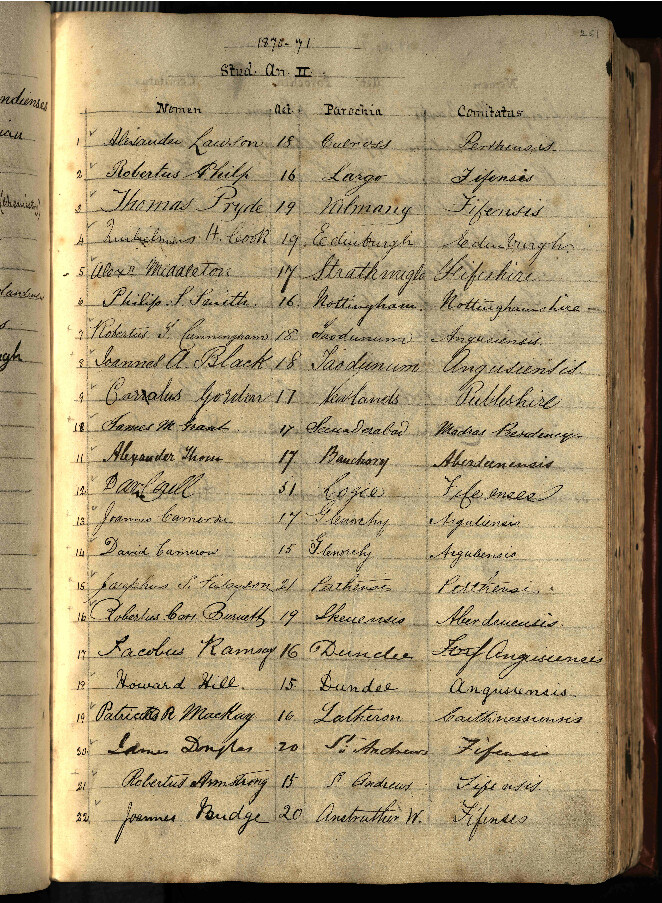 251
1870-71
Stud. An. II.
Nomen Aet. Parochia Comitatus
1 Alexander Lawson 15 Culross Perthensis
2 Robertus Philp 16 Largo Fifensis
3 Thomas Pryde 19 Kilmany Fifensis
4 H. Cook 19 Edinburgh Edinburgh
5 Alexr Middleton 17 Strathmiglo Fifeshire
6 Philip S. Smith 16 Nottingham Nottinghamshire
7 Robertus Cunningham 18 Taodunum Angusiensis
8 Joannes A Black 18 Taodunum Angusiensis
9 Carolus Gordon 17 Newlands Peebleshire
10 James M. Grant 17 Secunderabad Madras Presidency
11 Alexander Thom 17 Banchory Aberdonensis
12 Gill 31 Logie Fife enses
13 Joannes Cameron 17 Glenorchy
14 David Cameron 15 Glenorchy
15 Josephus S. Finlayson 21
16 Robertus Burnett 19 Skenensis
17 Jacobus Ramsay 16 Dundee Forf Angusienses
18 Howard Hill. 15 Dundee Angusiensis
19 Patricius R MacKay 16 Latheron Caithnessiensis
20 James Douglas 20 St Andrews Fifensis
21 Robertus Armstrong 15 St Andrews Fifensis
22 Joannes Budge 20 Anstruther W. Fifenses